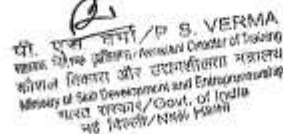 पी. एस. वर्मा/P S. VERMA
सहायक निदेशक प्रशिक्षण/Assistant Director of Training
कौशल विकास और उद्यमशीलता मंत्रालय
Ministry of Skill Development and Entrepreneurship
भारत सरकार/Govt. of India
नई दिल्ली/New Delhi